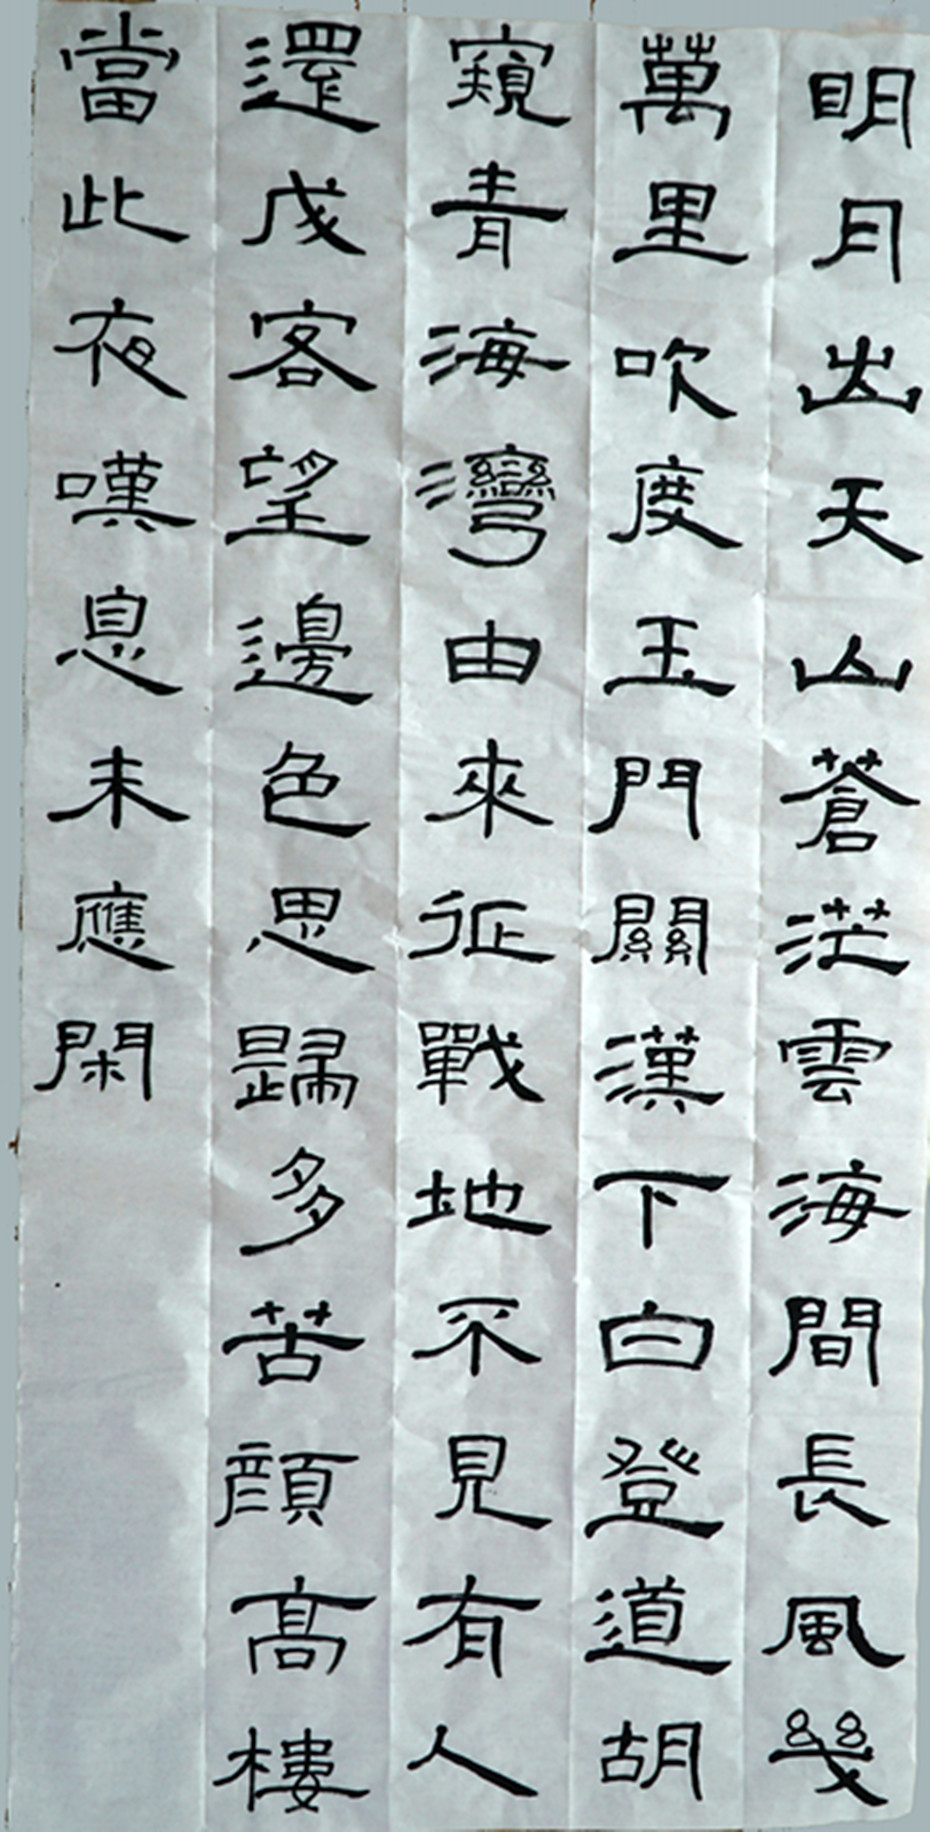 明月出天山蒼茫雲海間長風幾
萬里吹度玉門關漢下白登道胡
窺青海灣由來征戰地不見有人
還戍客望邊色思歸多苦顔高樓
當此夜嘆息未應閑